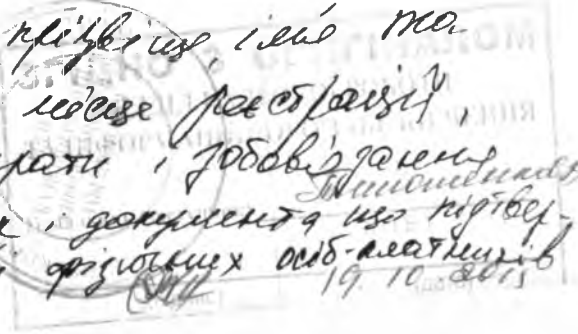 прізвище, імя та
місце реєстрації,
рати і зобовязання
і документа що підтвер-
фізичних осіб-платників
19.10.2015